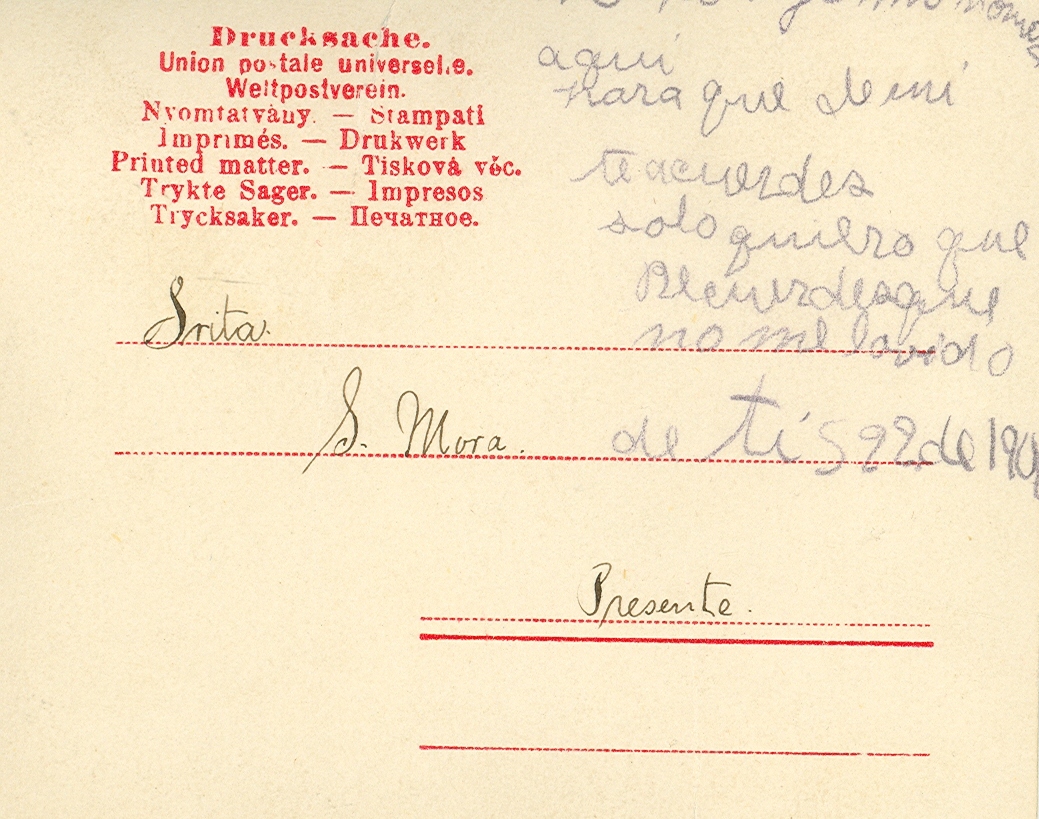 Drucksache.
Union postale universelle.
Weltpostverein.
Nyomtatvány. — Stampati
Imprimés. — Drukwerk
Printed matter. — Tisková věc.
Trykte Sager. — Impresos
Trycksaker. — Печатное.
aquí
para que de mí
te acuerdes
solo quiero que
Recuerdes que
no me lovido
de tí
Srita.
S. Mora.
Presente.